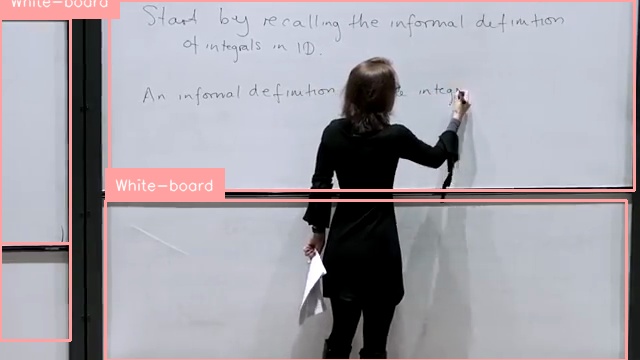 White-board
Start by recalling the informal definition
of integrals in 1D.
An informal definition integ
White-board